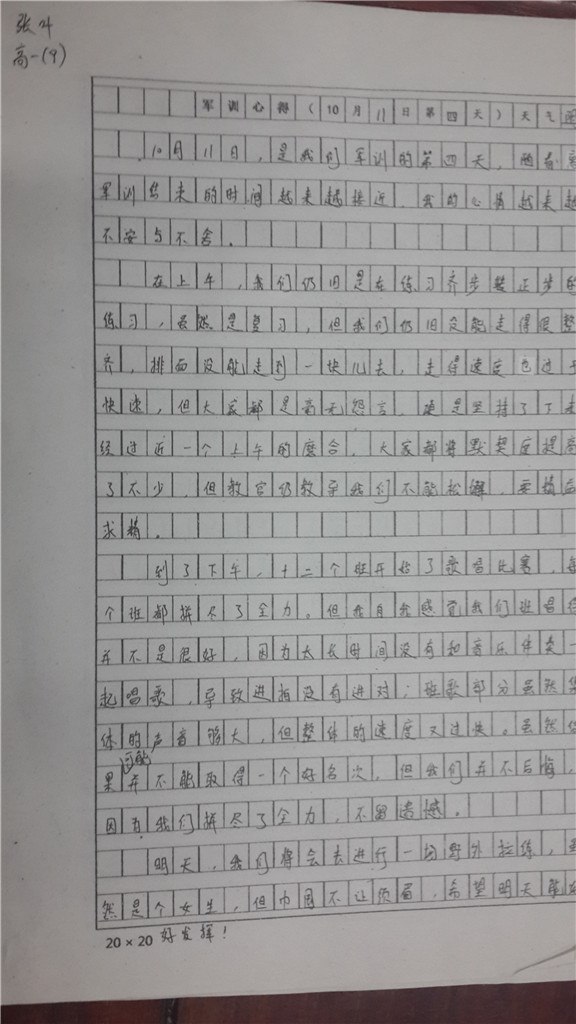 张叶
高一(9)
军训心得（10月11日第四天）天气
10月11日，是我们军训的第四天，随着
军训结束的时间越来越接近，我的心情越来越
不安与不舍。
在上午，我们仍旧是在练习齐步跟正步的
练习，虽然是复习，但我们仍旧没能走得很整
齐，排面没能走到一块儿去，走得速度也过于
快速，但大家都是毫无怨言，硬是坚持了下来
经过近一个上午的磨合，大家都将默契度提高
了不少，但教官仍教导我们不能松懈，要精益
求精。
到了下午，十二个班开始了歌唱比赛，每
个班都拼尽了全力。但我自我感觉我们班唱得
并不是很好，因为太长时间没有和音乐伴奏一
起唱歌，导致进拍没有进对；班歌部分虽然集
体的声音够大，但整体的速度又过快。虽然结
果可能并不能取得一个好名次，但我们并不后悔，
因为我们拼尽了全力，不留遗憾。
明天，我们将会去进行一场野外拉练，虽
然是个女生，但巾帼不让须眉，希望明天能够
20×20 好发挥！